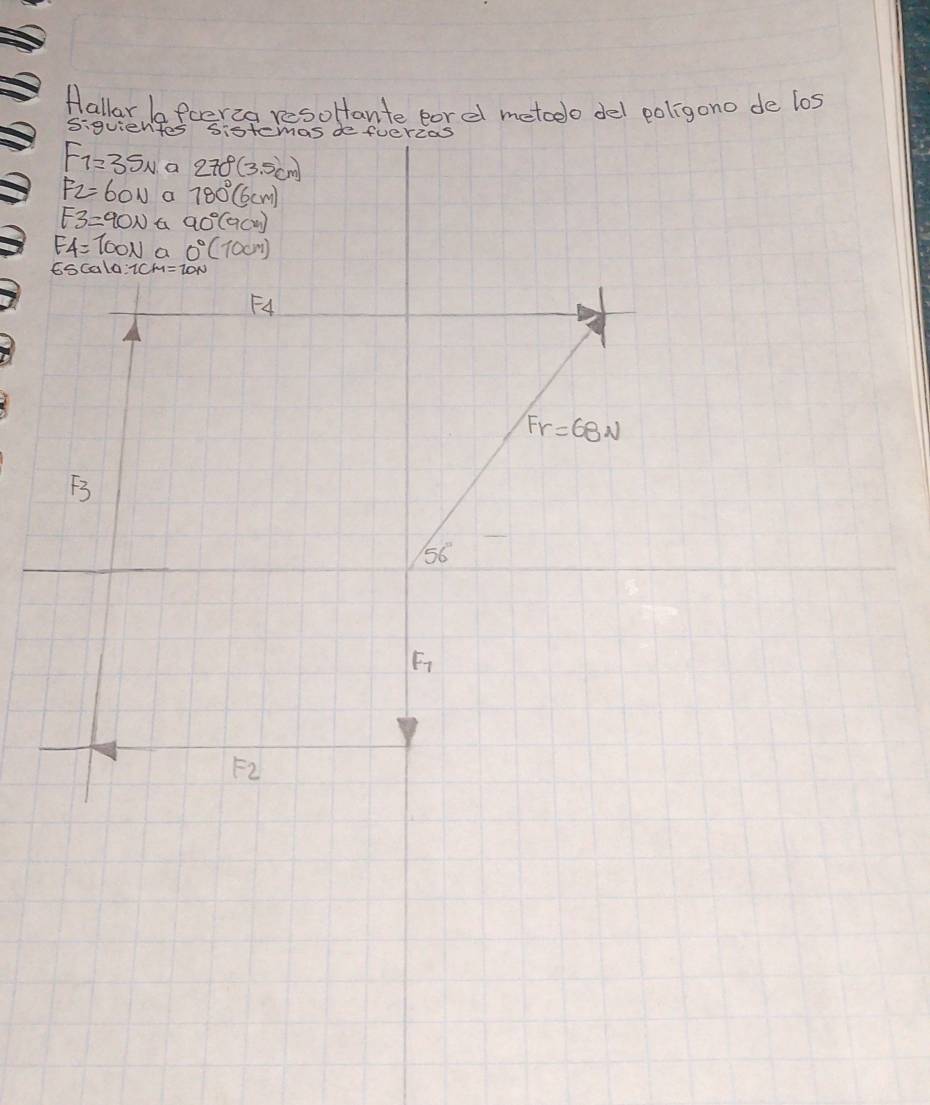 Hallar la fuerza resoltante por el metodo del polígono de los
siguientes sistemas de fuerzas
F1=35N a 270°(3.5cm)
F2=60N a 180°(6cm)
F3=90N a 90°(9cm)
F4=100N a 0°(10cm)
Escala:1CM=10N
F4
Fr=68N
F3
56°
F1
F2